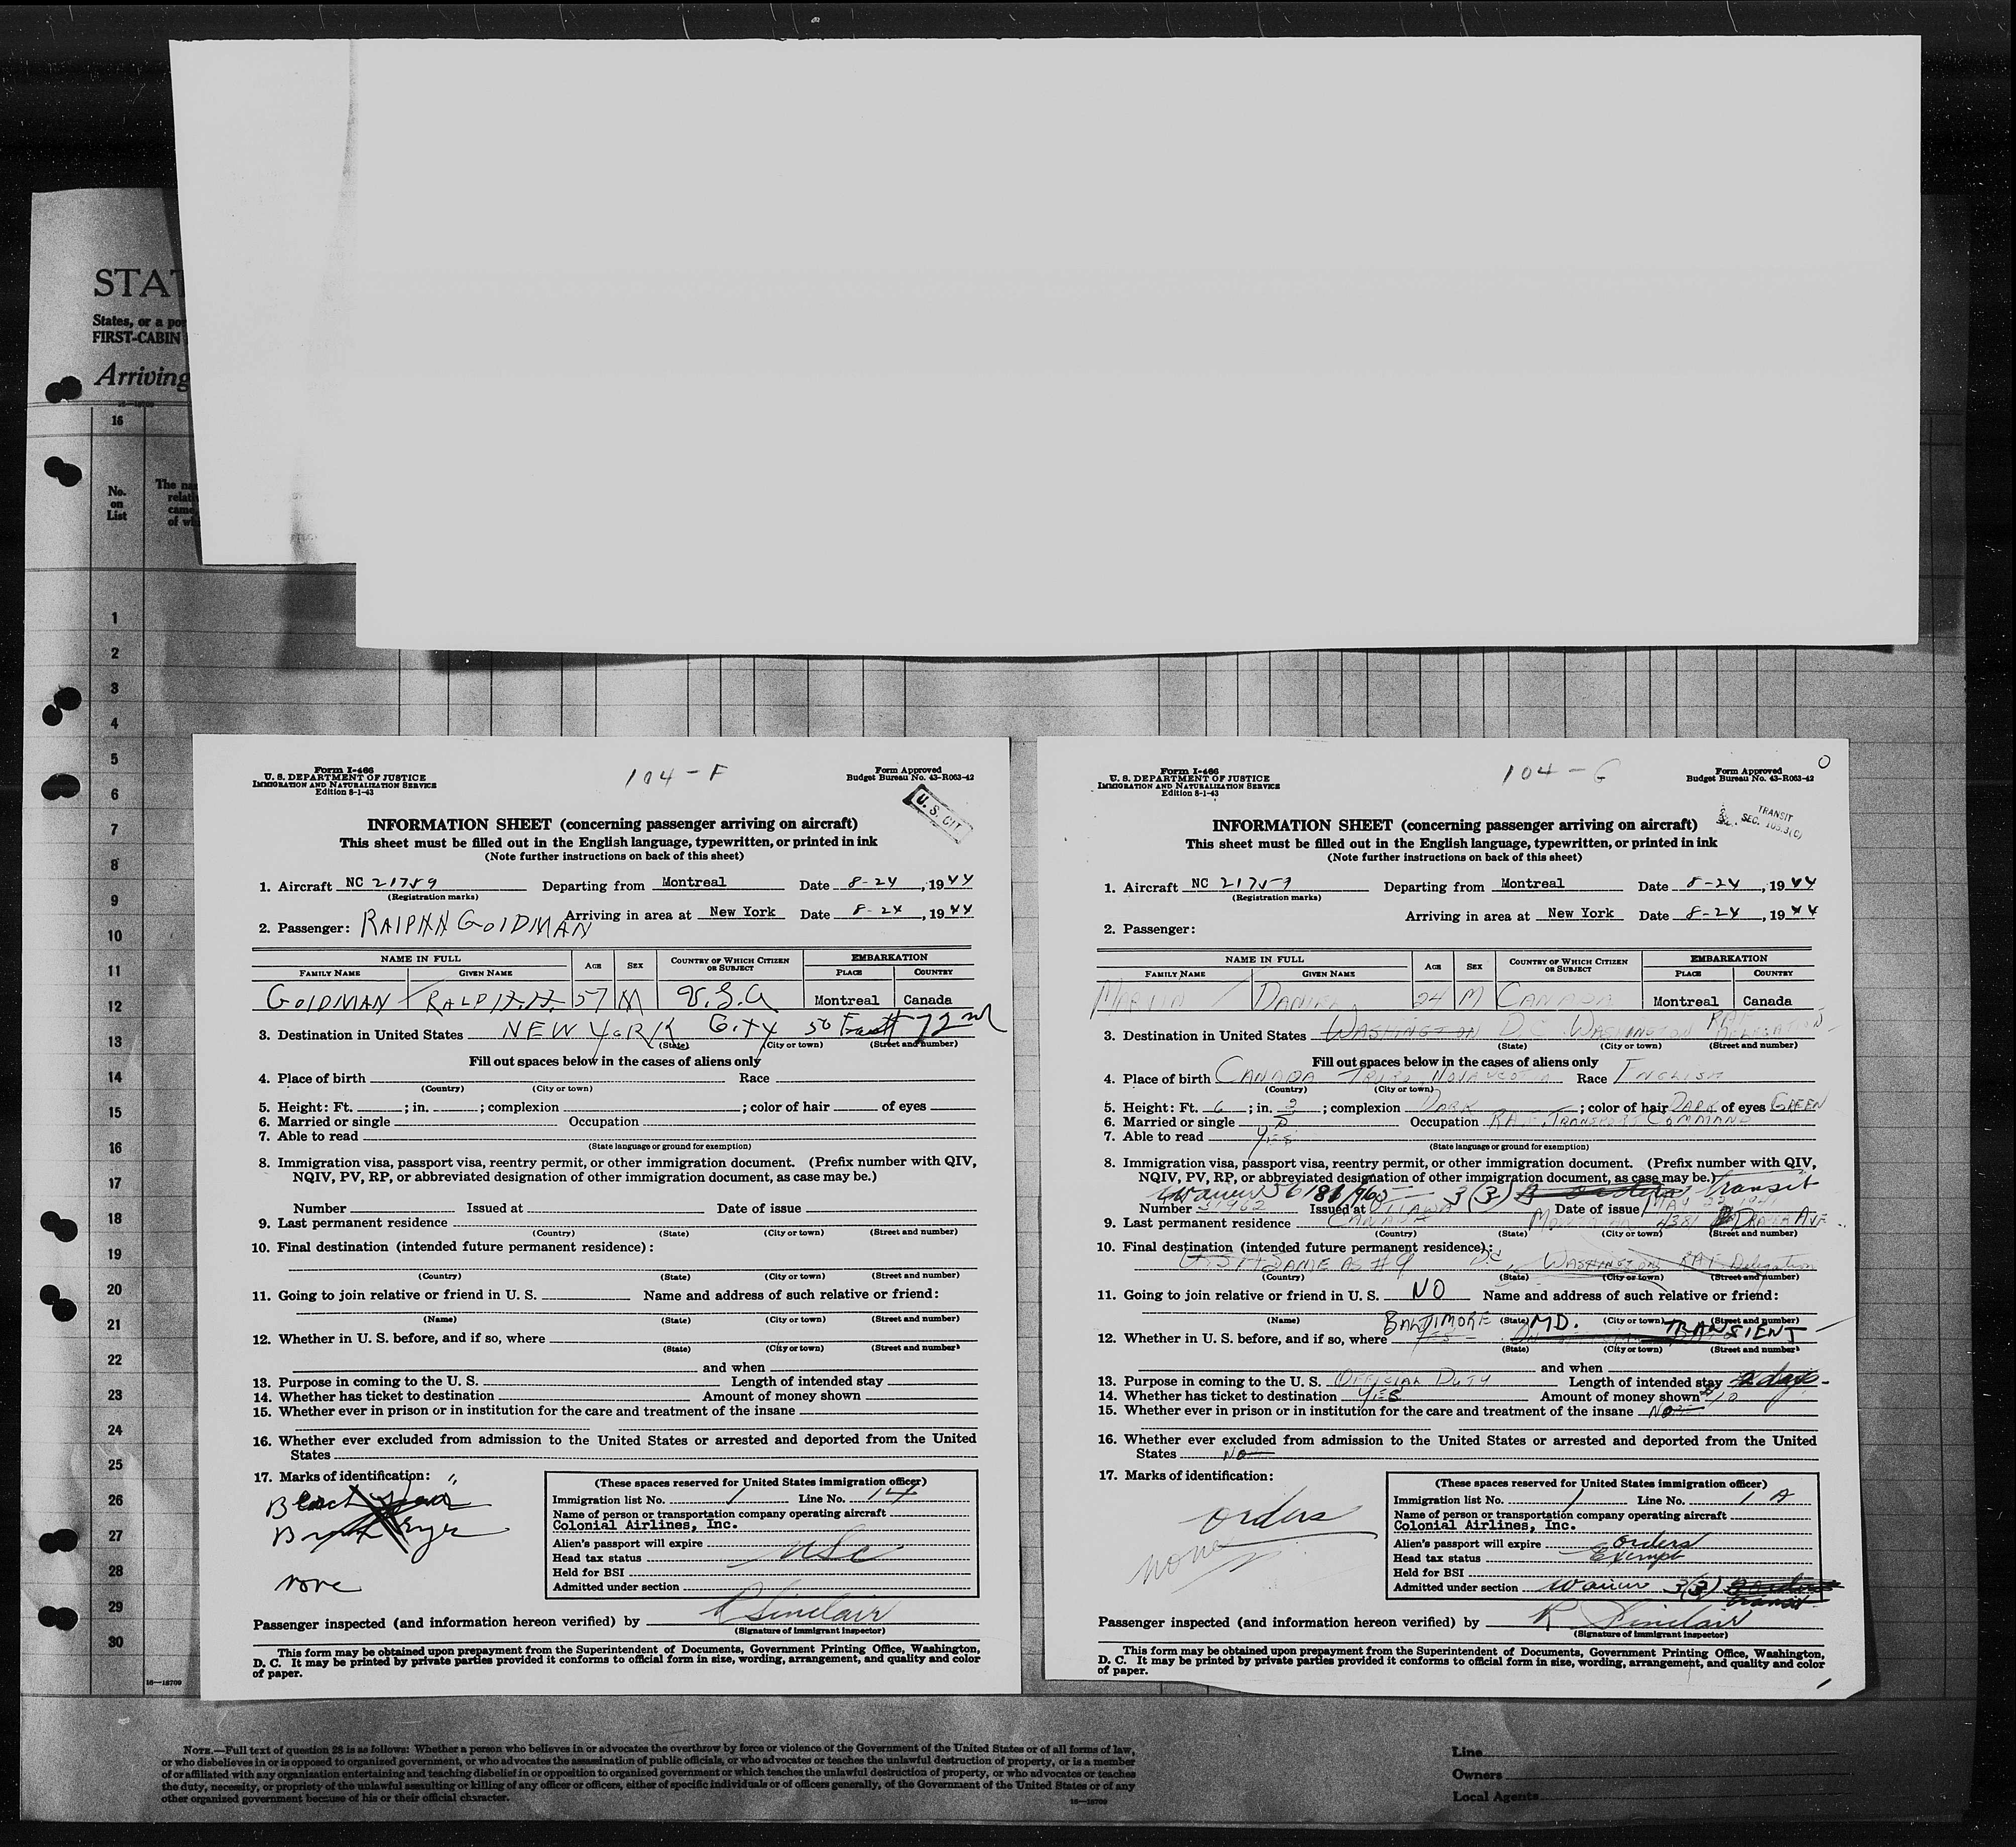 STAT
States, or a por
FIRST-CABIN
Arriving
16
No.
on
List
The na
relati
came
of wh
1
2
3
4
5
6
7
8
9
10
11
12
13
14
15
16
17
18
19
20
21
22
23
24
25
26
27
28
29
30
16—18709
Form I-466
U. S. DEPARTMENT OF JUSTICE
IMMIGRATION AND NATURALIZATION SERVICE
Edition 8-1-43
104-F
Form Approved
Budget Bureau No. 43-R063-42
U. S. CIT
INFORMATION SHEET (concerning passenger arriving on aircraft)
This sheet must be filled out in the English language, typewritten, or printed in ink
(Note further instructions on back of this sheet)
1. Aircraft NC 21759 Departing from Montreal Date 8-24, 1944
(Registration marks)
Arriving in area at New York Date 8-24, 1944
2. Passenger: RALPHH GOLDMAN
NAME IN FULL AGE SEX COUNTRY OF WHICH CITIZEN OR SUBJECT EMBARKATION
FAMILY NAME GIVEN NAME PLACE COUNTRY
GOLDMAN 57 M U.S.A Montreal Canada
3. Destination in United States NEW YORK City 50 East 72nd
(State) (City or town) (Street and number)
Fill out spaces below in the cases of aliens only
4. Place of birth Race
(Country) (City or town)
5. Height: Ft. ; in. ; complexion ; color of hair of eyes
6. Married or single Occupation
7. Able to read
(State language or ground for exemption)
8. Immigration visa, passport visa, reentry permit, or other immigration document. (Prefix number with QIV,
NQIV, PV, RP, or abbreviated designation of other immigration document, as case may be.)
Number Issued at Date of issue
9. Last permanent residence
(Country) (State) (City or town) (Street and number)
10. Final destination (intended future permanent residence):
(Country) (State) (City or town) (Street and number)
11. Going to join relative or friend in U. S. Name and address of such relative or friend:
(Name) (State) (City or town) (Street and number)
12. Whether in U. S. before, and if so, where
(State) (City or town) (Street and number)
and when
13. Purpose in coming to the U. S. Length of intended stay
14. Whether has ticket to destination Amount of money shown
15. Whether ever in prison or in institution for the care and treatment of the insane
16. Whether ever excluded from admission to the United States or arrested and deported from the United
States
17. Marks of identification:
Black Hair
Brown Eyes
none
(These spaces reserved for United States immigration officer)
Immigration list No. 1 Line No. 14
Name of person or transportation company operating aircraft
Colonial Airlines, Inc.
Alien's passport will expire
Head tax status USC
Held for BSI
Admitted under section
Passenger inspected (and information hereon verified) by R Sinclair
(Signature of immigrant inspector)
This form may be obtained upon prepayment from the Superintendent of Documents, Government Printing Office, Washington,
D. C. It may be printed by private parties provided it conforms to official form in size, wording, arrangement, and quality and color
of paper.
Form I-466
U. S. DEPARTMENT OF JUSTICE
IMMIGRATION AND NATURALIZATION SERVICE
Edition 8-1-43
104-G
Form Approved
Budget Bureau No. 43-R063-42
TRANSIT
SEC. 103.3(C)
INFORMATION SHEET (concerning passenger arriving on aircraft)
This sheet must be filled out in the English language, typewritten, or printed in ink
(Note further instructions on back of this sheet)
1. Aircraft NC 21759 Departing from Montreal Date 8-24, 1944
(Registration marks)
Arriving in area at New York Date 8-24, 1944
2. Passenger:
NAME IN FULL AGE SEX COUNTRY OF WHICH CITIZEN OR SUBJECT EMBARKATION
FAMILY NAME GIVEN NAME PLACE COUNTRY
MARTIN DANIEL 24 M CANADA Montreal Canada
3. Destination in United States WASHINGTON D.C. WASHINGTON RAF DELEGATION
(State) (City or town) (Street and number)
Fill out spaces below in the cases of aliens only
4. Place of birth CANADA TRURO NOVA SCOTIA Race ENGLISH
(Country) (City or town)
5. Height: Ft. 6; in. 2; complexion DARK; color of hair DARK of eyes GREEN
6. Married or single S Occupation RAF TRANSPORT COMMAND
7. Able to read YES
(State language or ground for exemption)
8. Immigration visa, passport visa, reentry permit, or other immigration document. (Prefix number with QIV,
NQIV, PV, RP, or abbreviated designation of other immigration document, as case may be.)
Waiver 3(3) transit
Number 31962 Issued at OTTAWA Date of issue MAY 22
9. Last permanent residence CANADA MONTREAL 4381 DRAPER AVE
(Country) (State) (City or town) (Street and number)
10. Final destination (intended future permanent residence):
USA SAME AS #9 D.C. WASHINGTON RAF Delegation
(Country) (State) (City or town) (Street and number)
11. Going to join relative or friend in U. S. NO Name and address of such relative or friend:
(Name) (State) (City or town) (Street and number)
12. Whether in U. S. before, and if so, where BALTIMORE MD. TRANSIENT
(State) (City or town) (Street and number)
and when
13. Purpose in coming to the U. S. OFFICIAL DUTY Length of intended stay 2 days
14. Whether has ticket to destination YES Amount of money shown $10
15. Whether ever in prison or in institution for the care and treatment of the insane NO
16. Whether ever excluded from admission to the United States or arrested and deported from the United
States NO
17. Marks of identification:
orders
none
(These spaces reserved for United States immigration officer)
Immigration list No. 1 Line No. 1 A
Name of person or transportation company operating aircraft
Colonial Airlines, Inc.
Alien's passport will expire orders
Head tax status Exempt
Held for BSI
Admitted under section waiver 3(3) transit
Passenger inspected (and information hereon verified) by R Sinclair
(Signature of immigrant inspector)
This form may be obtained upon prepayment from the Superintendent of Documents, Government Printing Office, Washington,
D. C. It may be printed by private parties provided it conforms to official form in size, wording, arrangement, and quality and color
of paper.
NOTE.—Full text of question 28 is as follows: Whether a person who believes in or advocates the overthrow by force or violence of the Government of the United States or of all forms of law,
or who disbelieves in or is opposed to organized government, or who advocates the assassination of public officials, or who advocates or teaches the unlawful destruction of property, or is a member
of or affiliated with any organization entertaining and teaching disbelief in or opposition to organized government or which teaches the unlawful destruction of property, or who advocates or teaches
the duty, necessity, or propriety of the unlawful assaulting or killing of any officer or officers, either of specific individuals or of officers generally, of the Government of the United States or of any
other organized government because of his or their official character.
16—18709
Line
Owners
Local Agents